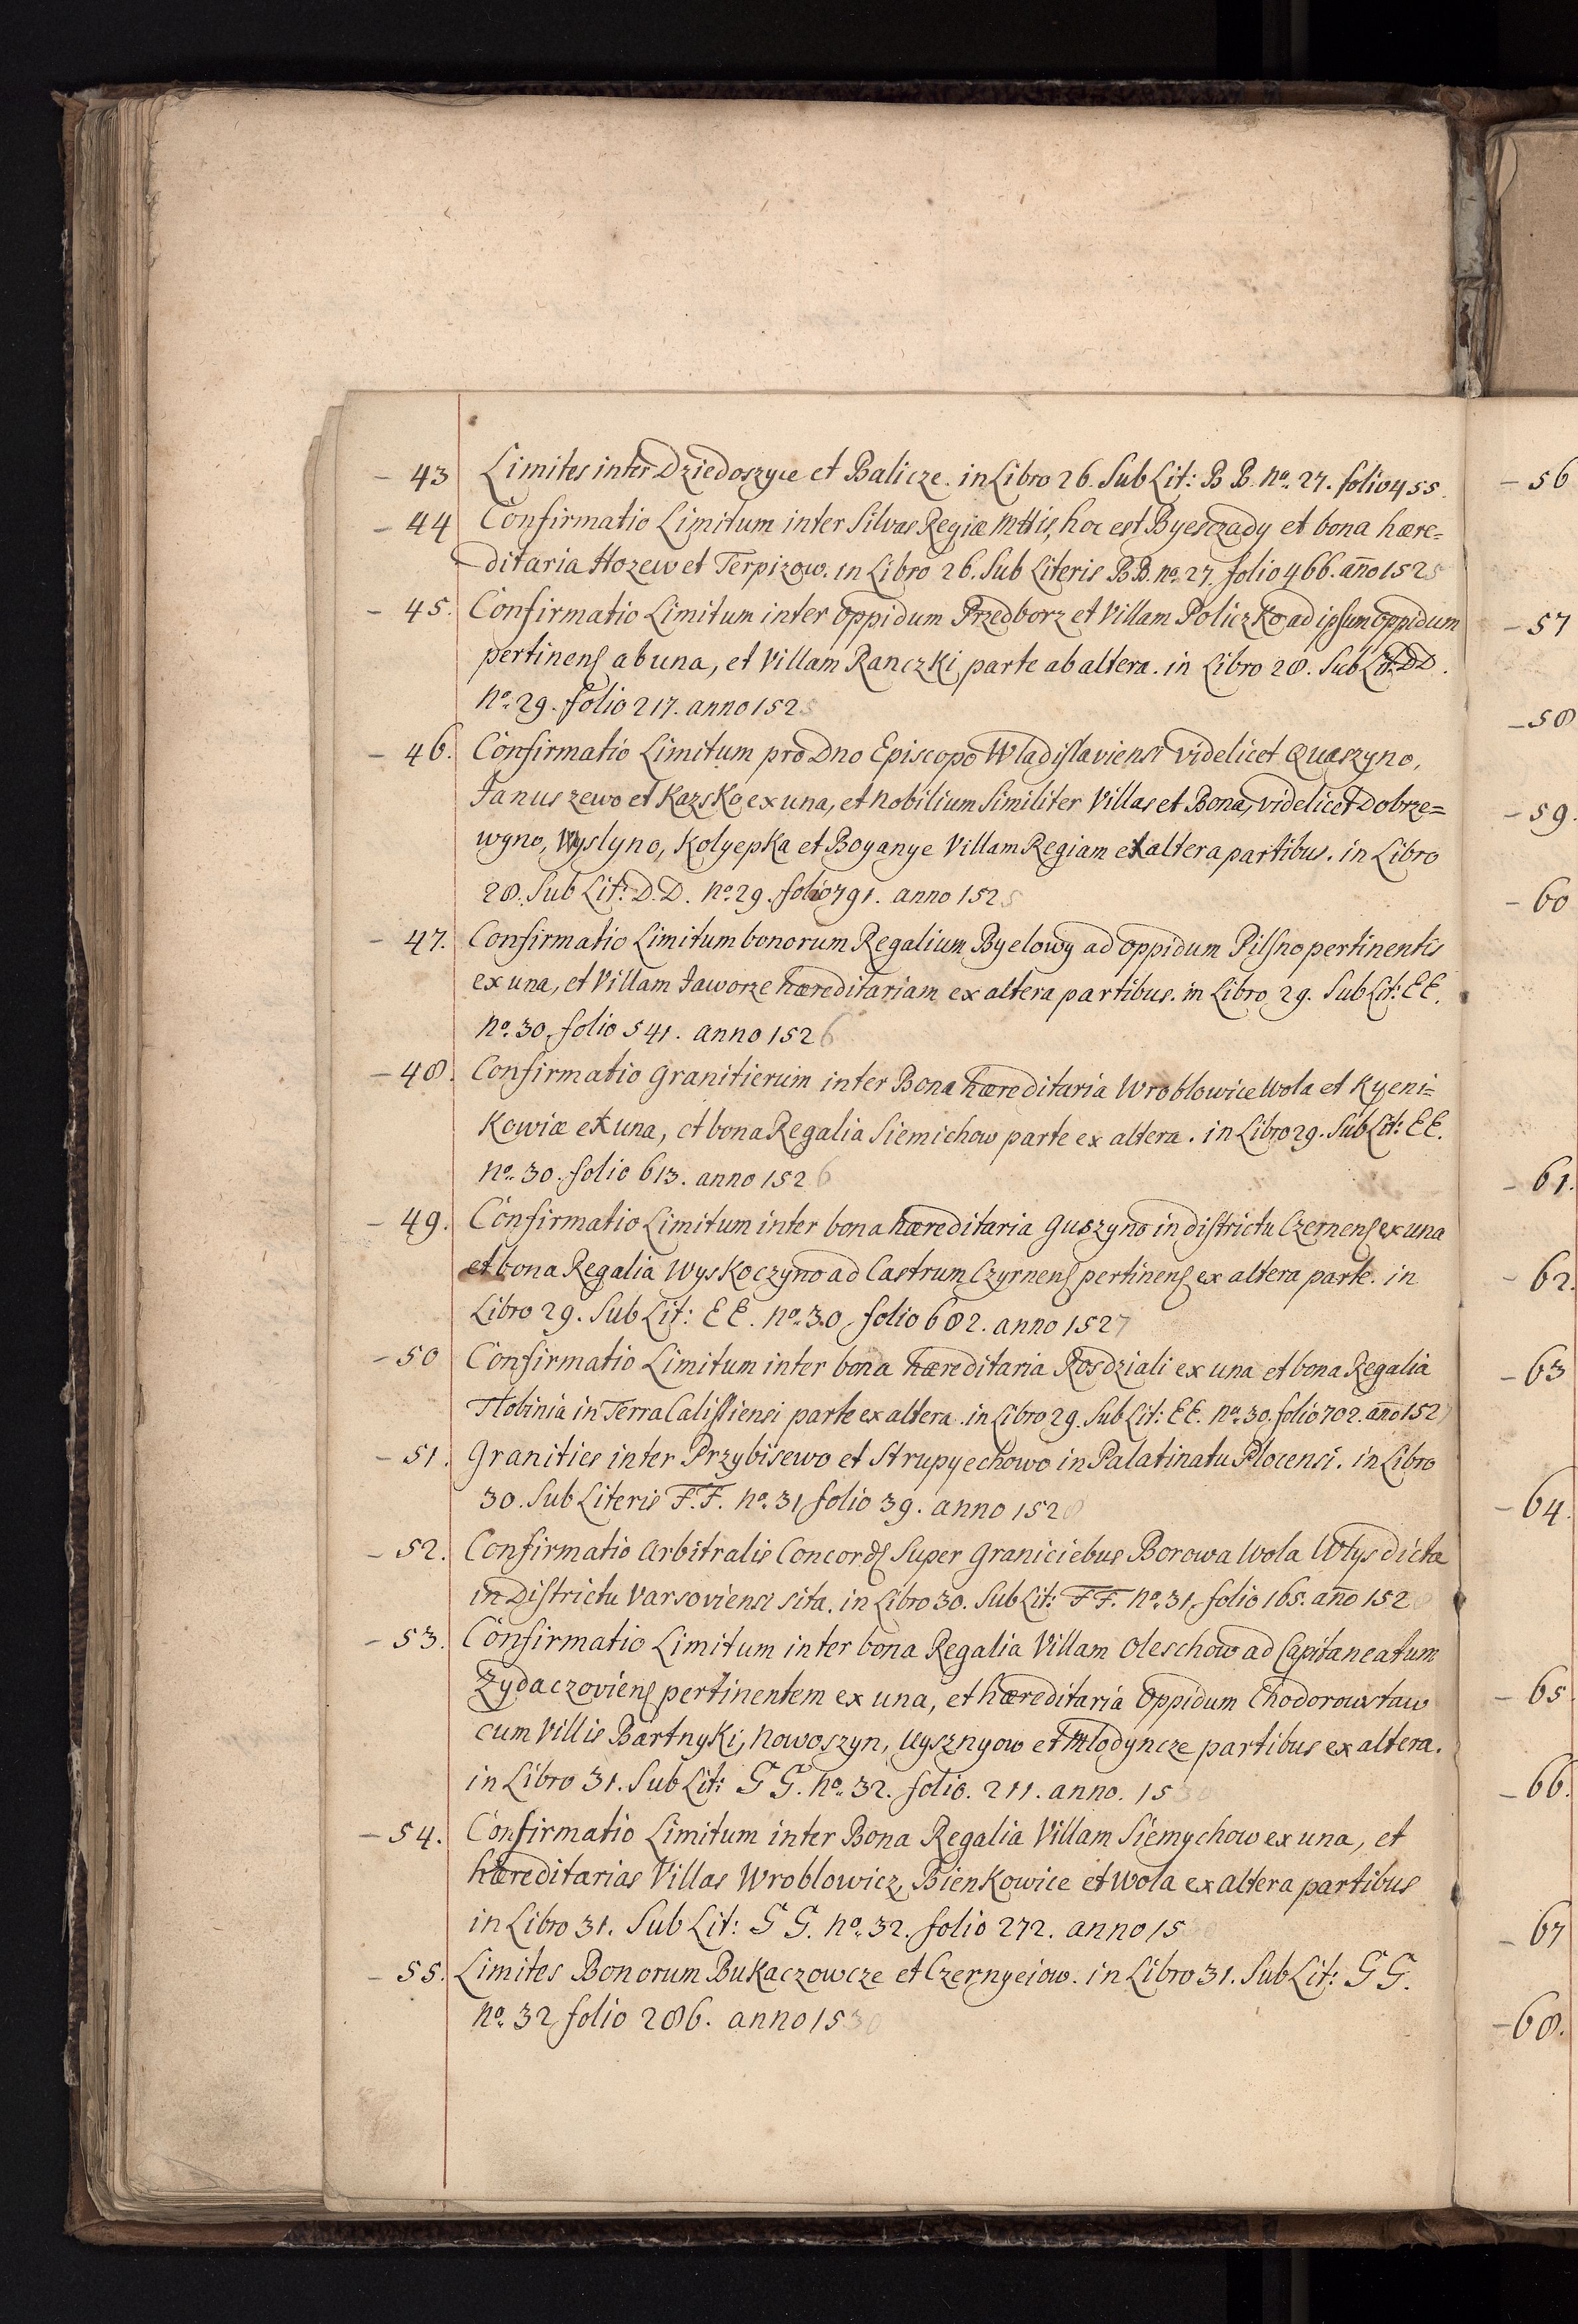 - 43 Limites inter Dziedoszyce et Balicze. in Libro 26. Sub Lit: BB. no. 27. folio 455.
- 44 Confirmatio Limitum inter Silvas Regiæ Mttis, hoc est Byesczady et bona hære=
ditaria Hozew et Terpizow. in Libro 26. Sub Literis BB. no. 27. folio 466. año 1525
- 45. Confirmatio Limitum inter oppidum Przedborz et Villam Policzko ad ipsum oppidum
pertinens ab una, et Villam Ranczki parte ab altera. in Libro 28. Sub Lit: DD.
no. 29. folio 217. anno 1525
- 46. Confirmatio Limitum pro Dno Episcopo Wladislaviensi videlicet Quaszyno,
Januszewo et Kazsko ex una, et Nobilium Similiter Villas et Bona, videlicet Dobrze=
wyno, Wyslyno, Kolyepka et Boyanye Villam Regiam ex altera partibus. in Libro
28. Sub Lit: D.D. no. 29. folio 791. anno 1525
- 47. Confirmatio Limitum bonorum Regalium Byelowy ad oppidum Pilsno pertinentis
ex una, et Villam Jaworze hæreditariam ex altera partibus. in Libro 29. Sub Lit: EE.
no. 30. folio 541. anno 1526
- 48. Confirmatio Granitierum inter Bona hæreditaria Wroblowice Wola et Kyeni=
Kowiæ ex una, et bona Regalia Siemichow parte ex altera. in Libro 29. Sub Lit: EE.
no. 30. folio 613. anno 1526
- 49. Confirmatio Limitum inter bona hæreditaria Guszyno in districtu Czernens ex una
et bona Regalia Wyskoczyno ad Castrum Czyrnens pertinens ex altera parte. in
Libro 29. Sub Lit: EE. no. 30. folio 682. anno 1527
- 50 Confirmatio Limitum inter bona hæreditaria Rosdziali ex una et bona Regalia
Tlobinia in Terra Calissiensi parte ex altera. in Libro 29. Sub Lit: EE. no. 30. folio 702. año 1527
- 51. Granities inter Przybisewo et Strupyechowo in Palatinatu Plocensi. in Libro
30. Sub Literis F.F. no. 31 folio 39. anno 1528
- 52. Confirmatio Arbitralis Concords Super Graniciebus Borowa Wola Wlys dicta
in Districtu Varsoviensi sita. in Libro 30. Sub Lit: FF. no. 31. folio 165. año 1528
- 53. Confirmatio Limitum inter bona Regalia Villam Oleschow ad Capitaneatum
Zydaczoviens pertinentem ex una, et hæreditaria Oppidum Chodorowstaw
cum Villis Bartnyki, Nowoszyn, Uysznyow et Mlodyncze partibus ex altera.
in Libro 31. Sub Lit: GG. no. 32. folio. 211. anno. 1530
- 54. Confirmatio Limitum inter Bona Regalia Villam Siemychow ex una, et
hæreditarias Villas Wroblowicz, Bienkowice et Wola ex altera partibus
in Libro 31. Sub Lit: GG. no. 32. folio 272. anno 1530
- 55. Limites Bonorum Bukaczowcze et Czernyeiow. in Libro 31. Sub Lit: GG.
no. 32 folio 286. anno 1530
- 56
- 57
- 58
- 59.
- 60
- 61.
- 62.
- 63
- 64.
- 65
- 66.
- 67
- 68.